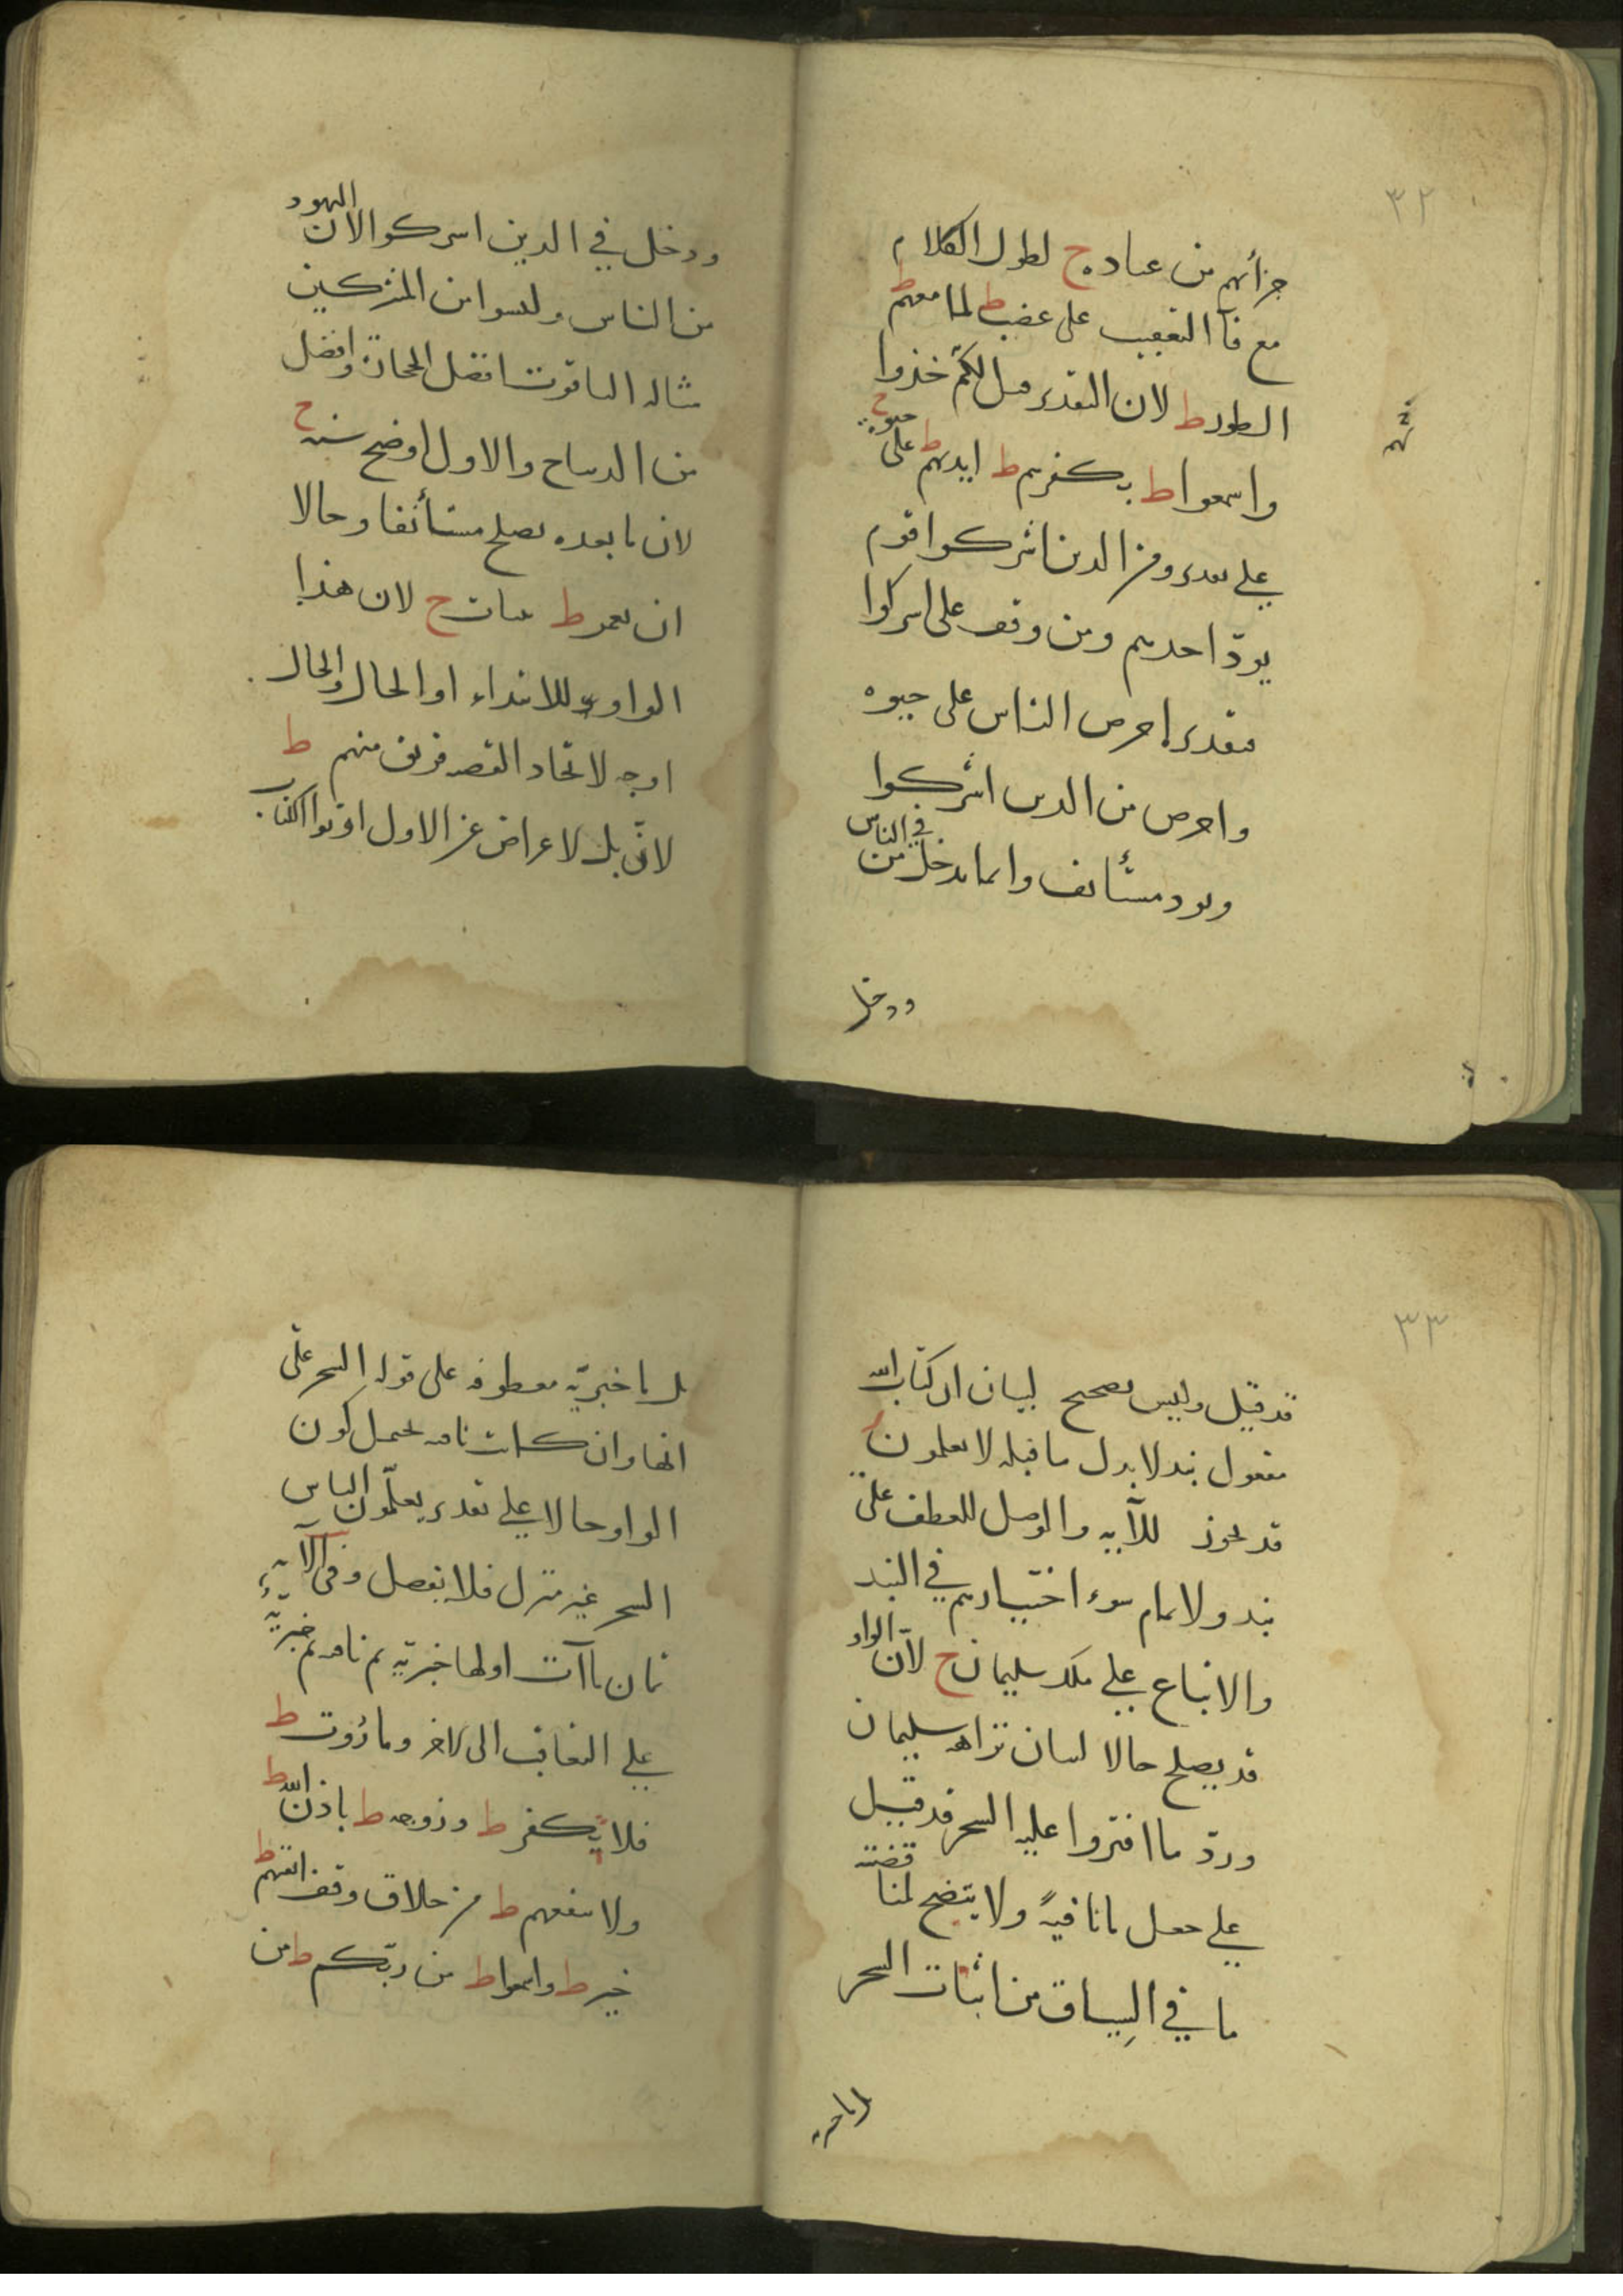 ٣٢
جزائهم من عباده ج لطول الكلام
مع فآ التعقيب على غضب ط لما معهم ط
الطور ط لان التقدير قيل لكم خذوا
واسمعوا ط بكفرهم ط ايديهم ط على حيوة ج
على تقدير ومن الذين اشركوا قوم
يودّ احدهم ومن وقف على اشركوا
فتقديره احرص الناس على حيوه
واحرص من الذين اشركوا
ويود مستأنف وانما يدخل من في الناس
ودخل
ودخل في الذين اشركوا لان اليهود
من الناس وليسوا من المشركين
مثاله الياقوت افضل الحجارة وافضل
من الديباج والاول اوضح سنة ج
لان ما بعده يصلح مستأنفا وحالا
ان يعمر ط بينات ج لان هذا
الواو للابتداء او الحال والحال
اوجه لاتحاد القصه فريق منهم ط
لانّ بل لاعراض عن الاول اوتوا الكتاب
٣٣
قد قيل وليس بصحيح لبيان ان كتاب الله
مفعول نبذ لا بدل ما قبله لا يعلمون
قد يجوز للآيه والوصل للعطف على
نبذ ولاتمام سوء اختيارهم في النبذ
والاتباع على ملك سليمان ج لانّ الواو
قد يصلح حالا لبيان نزاهه سليمان
وردّ ما افتروا عليه السحر قد قيل
على جعل ما نافيةً ولا يتضح لمناقضته
ما في السياق من اثبات السحر
بل ما خبريّه معطوفه على قوله السحر على
انها وان كانت نافيه يحتمل كون
الواو حالا على تقدير يعلّمون الناس
السحر غير منزل فلا يفصل وفى الآية
ثمان ماآت اولها خبريّه ثم نافيه ثم خبريّة
على التعاقب الى الاخر وماروت ط
فلا تكفر ط وزوجه ط باذن الله ط
ولا ينفعهم ط من خلاق وقف انفسهم ط
خير ط واسمعوا ط من ربّكم ط من